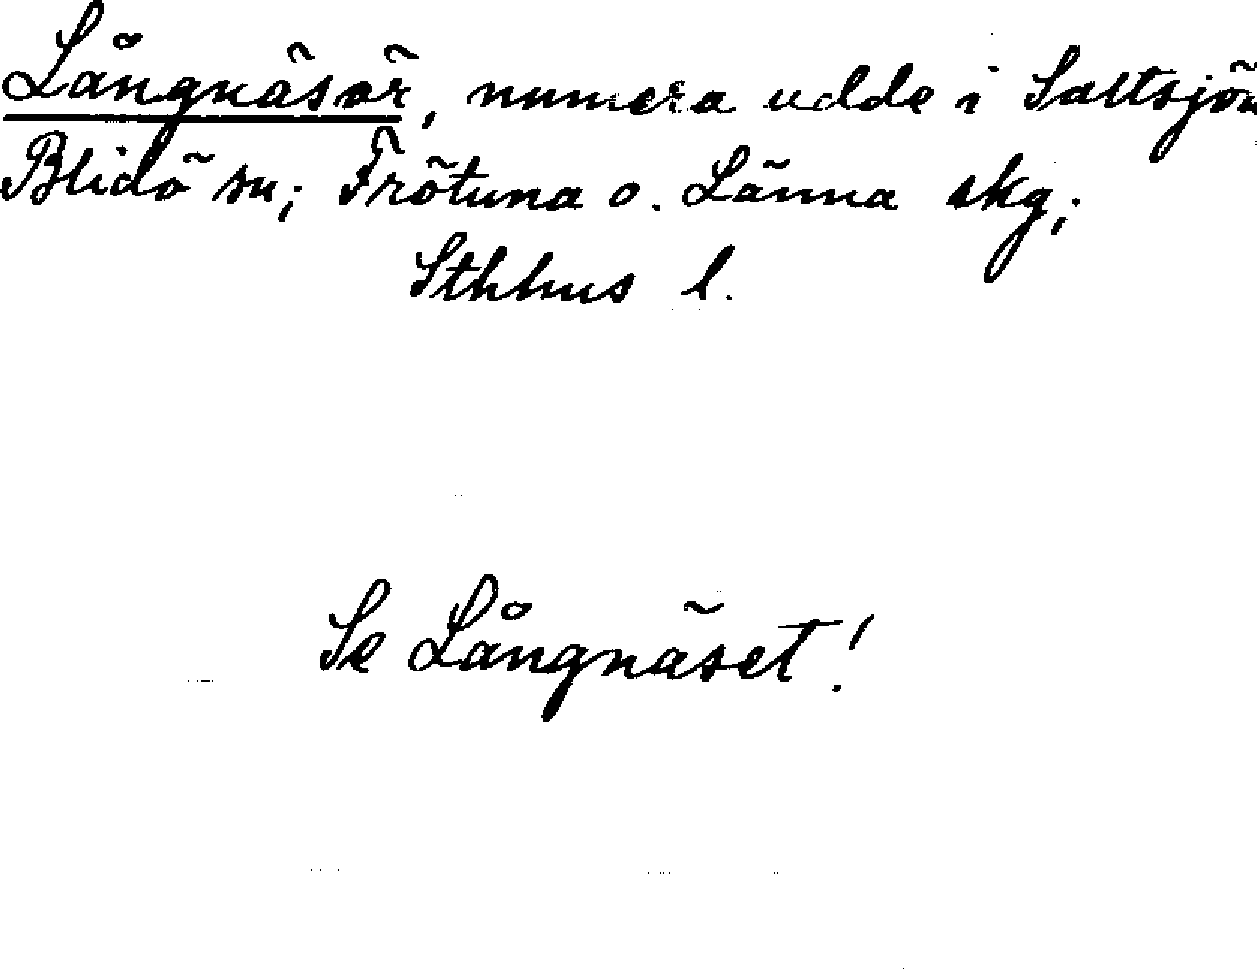 Långnäsör, numera udde i Saltsjön
Blidö sn; Frötuna o. Länna skg;
Sthhus l.
Se Långnäset!